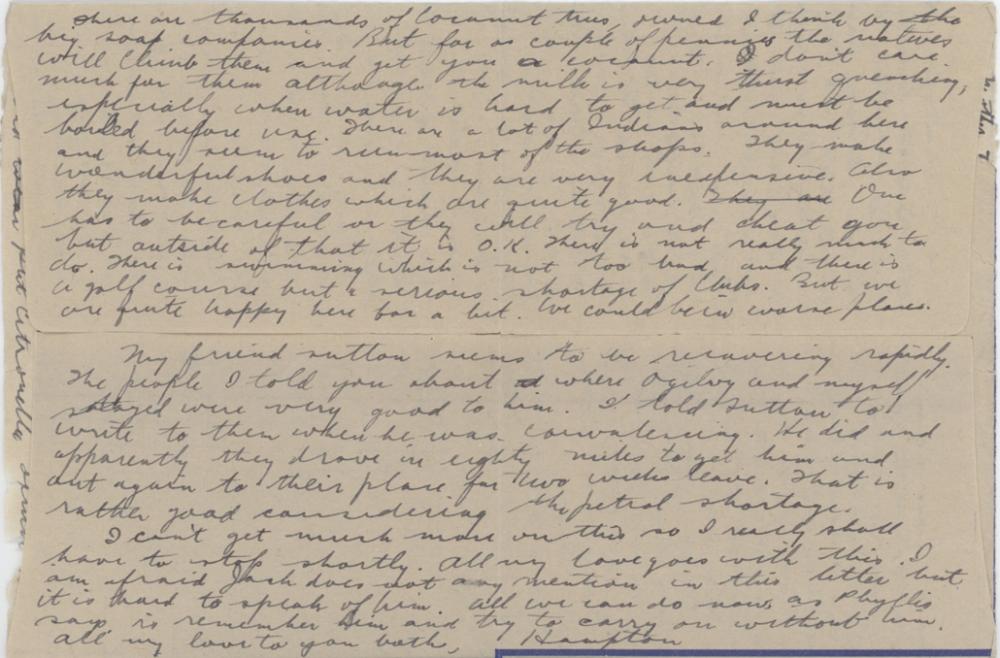 There are thousands of Coconut trees, owned I think by the
big soap companies. But for as couple of pennies the natives
will climb them and get you a coconut. I don't care
much for them although the milk is very thirst quenching,
especially when water is hard to get and must be
boiled before use. There are a lot of Indians around here
and they seem to run most of the shops. They make
wonderful shoes and they are very inexpensive. Also
they make clothes which are quite good. They are One
has to be careful or they will try and cheat you
but outside of that it is O.K. There is not really much to
do. There is swimming which is not too bad and there is
a golf course but a serious shortage of Clubs. But we
are quite happy here for a bit. We could be in worse places.
My friend Sutton seems to be recovering rapidly.
The people I told you about where Ogilvy and myself
stayed were very good to him. I told Sutton to
write to them when he was convalescing. He did and
apparently they drove in eighty miles to get him and
out again to their place for two weeks leave. That is
rather good considering the petrol shortage.
I can't get much more on this so I really shall
have to stop shortly. All my love goes with this. I
am afraid Jack does not any mention in this letter but
it is hard to speak of him. All we can do now as Phyllis
says is remember him and try to carry on without him.
All my love to you both, Hampton
put Citronella